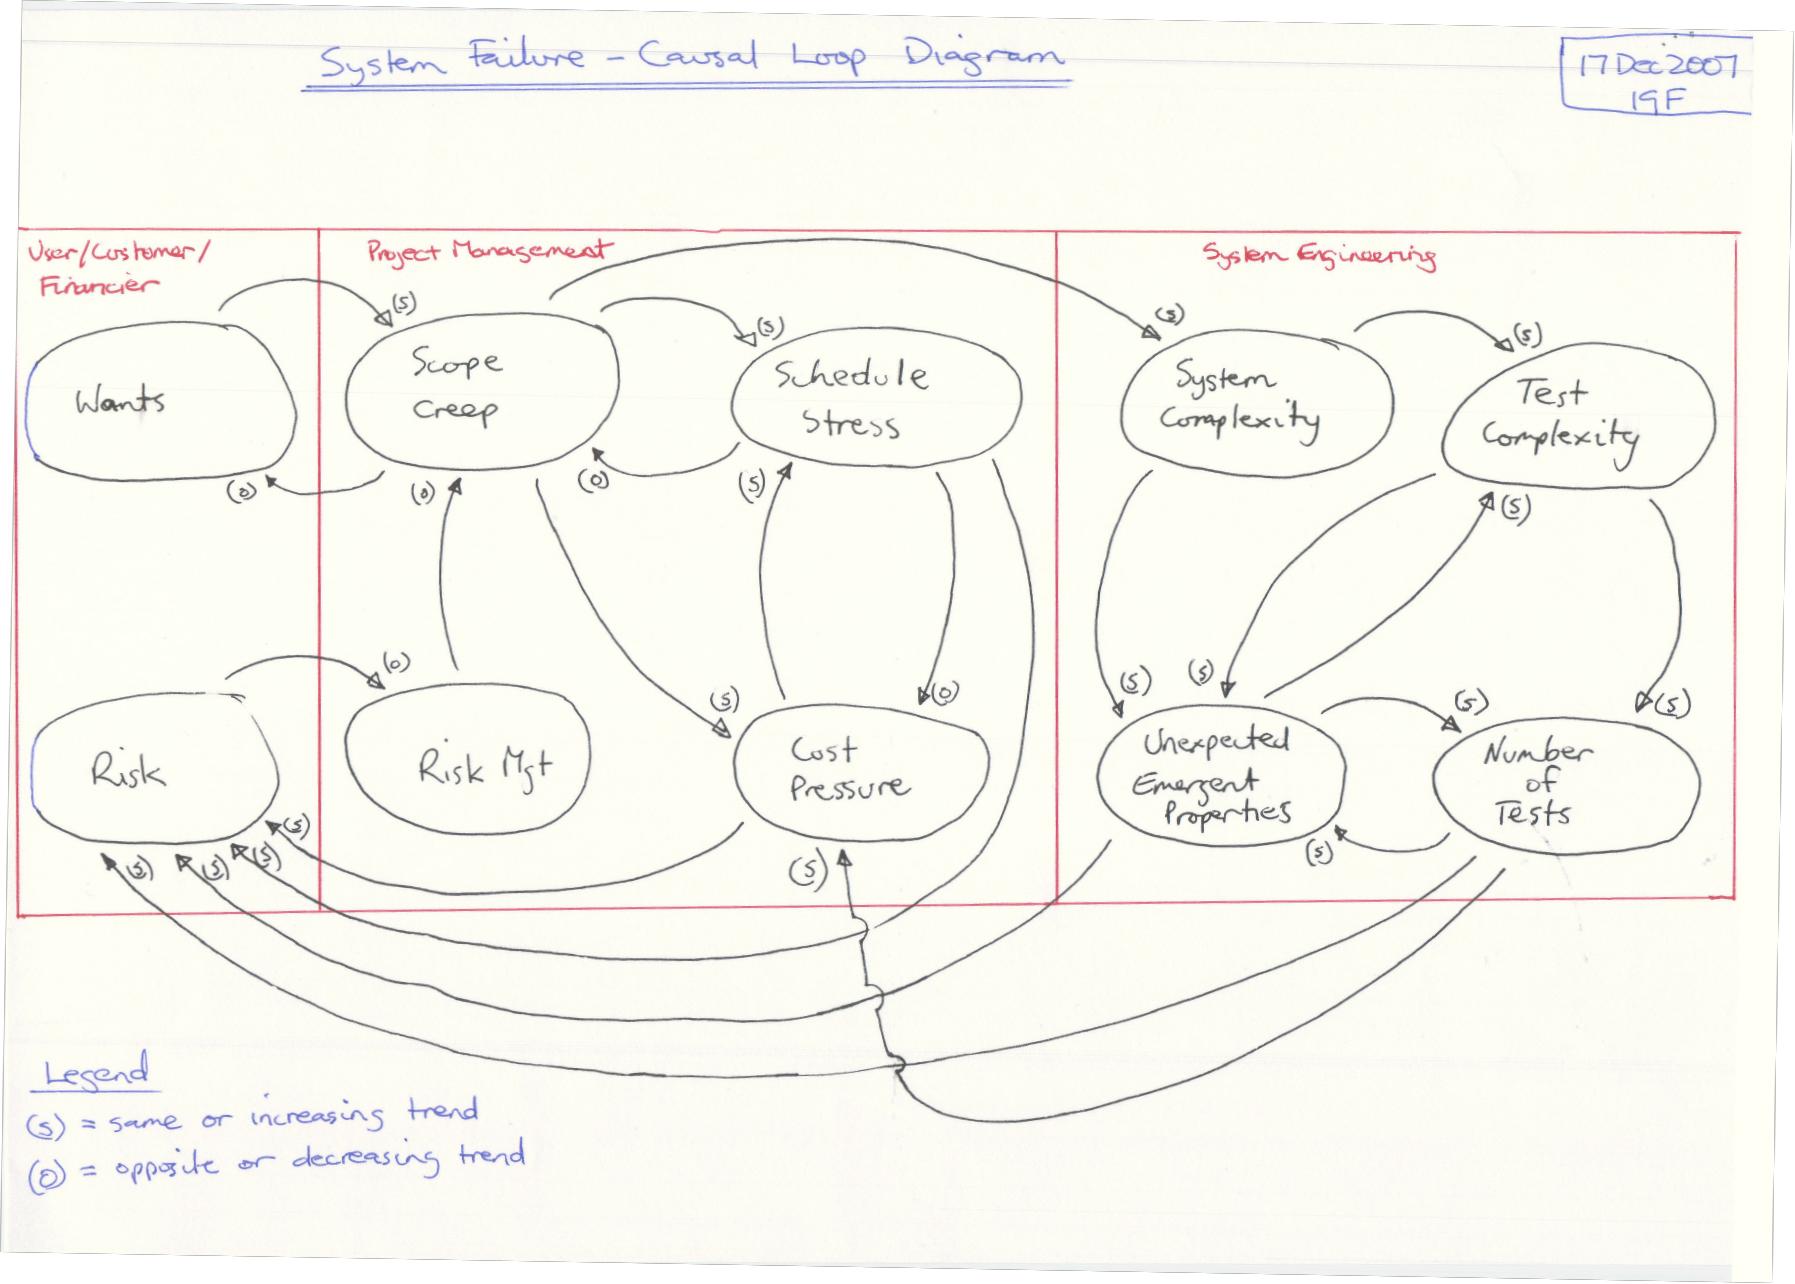 System Failure - Causal Loop Diagram
17 Dec 2007
IGF
User/Customer/
Financier
Project Management
System Engineering
(s)
(s)
(s)
(s)
Wants
Scope
Creep
Schedule
Stress
System
Complexity
Test
Complexity
(o)
(o)
(o)
(s)
(s)
(o)
(s)
(o)
(s)
(s)
(s)
(s)
Risk
Risk Mgt
Cost
Pressure
Unexpected
Emergent
Properties
Number
of
Tests
(s)
(s)
(s)
(s)
(s)
(s)
Legend
(s) = same or increasing trend
(o) = opposite or decreasing trend